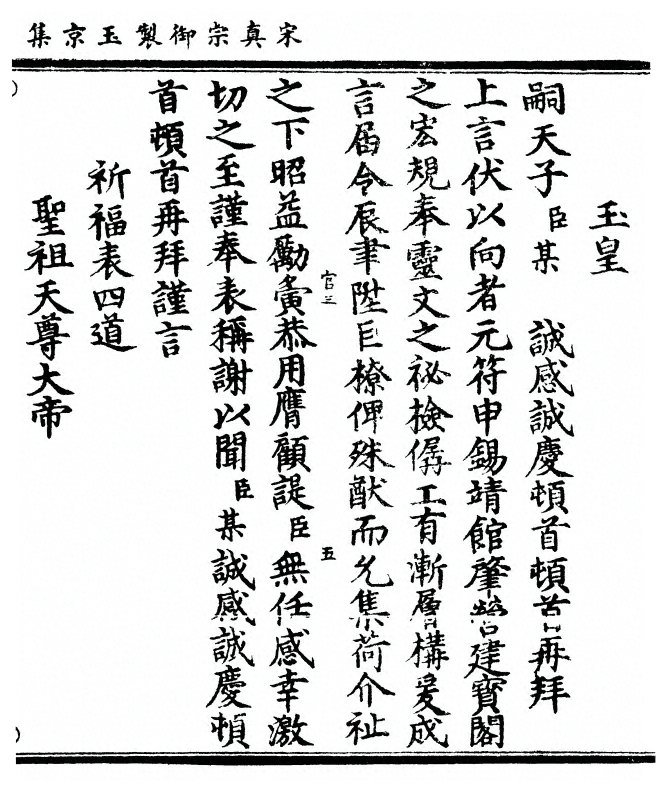 宋真宗御製玉京集
玉皇
嗣天子臣某　誠感誠慶頓首頓首再拜
上言伏以向者元符申錫靖館肇營建寶閣
之宏規奉靈文之祕檢僝工有漸層構爰成
言屆令辰聿陞巨橑俾殊猷而允集荷介祉
之下昭益勵夤恭用膺顧諟臣無任感幸激
官三
五
切之至謹奉表稱謝以聞臣某誠感誠慶頓
首頓首再拜謹言
祈福表四道
聖祖天尊大帝